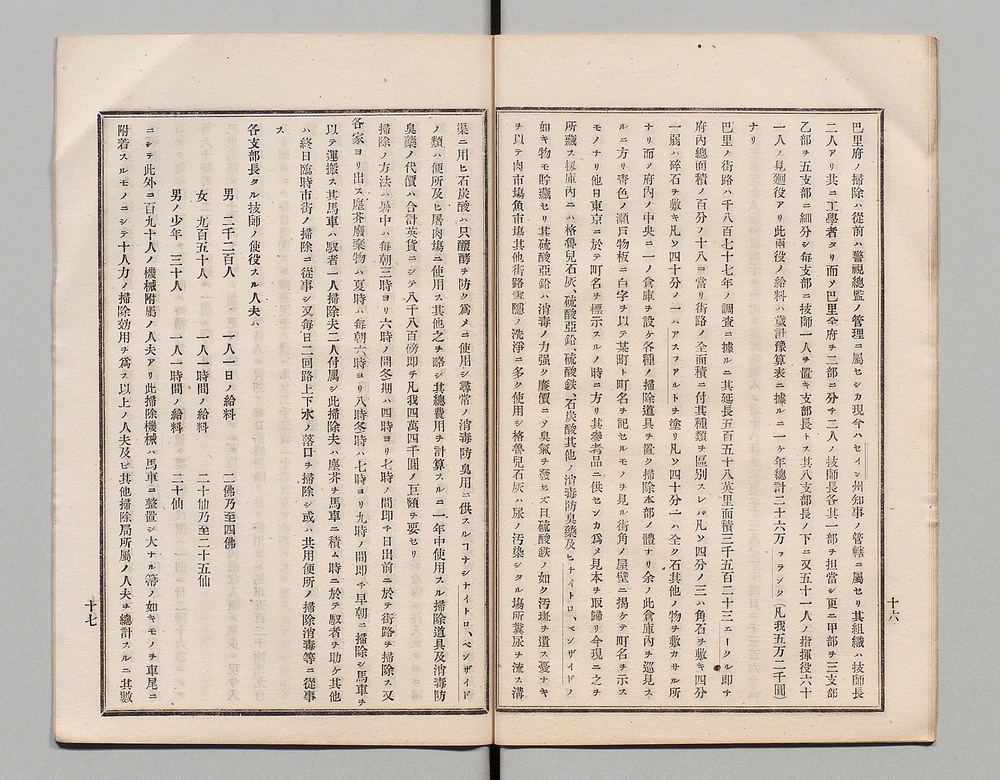 巴里府ノ掃除ハ從前ハ警視總監ノ管理ニ屬セシカ現今ハセイン州知事ノ管轄ニ屬セリ其組織ハ技師長
二人アリ共ニ工學者タリ而メ巴里全府ヲ二部ニ分チ二人ノ技師長各其一部ヲ担當シ更ニ甲部ヲ三支部
乙部ヲ五支部ニ細分シ每支部ニ技師一人ヲ置キ支部長トス其八支部長ノ下ニ又五十一人ノ指揮役六十
一人ノ見廻役アリ此兩役ノ給料ハ歲計豫算表ニ據ルニ一ケ年總計二十六万フランク(凡我五万二千圓)
ナリ
巴里ノ街路ハ千八百七十七年ノ調査ニ據ルニ其延長五百五十八英里面積三千五百二十三エークル即チ
府內總面積ノ百分ノ十八ヨ當リ街路ノ全面積ニ付其種類ヲ區別スレバ凡ソ四分ノ三ハ角石ヲ敷キ四分
一弱ハ碎石ヲ敷キ凡ソ四十分ノ一ハアスフアルトヲ塗リ凡ソ四十分一ハ全ク石其他ノ物ヲ敷カサル所
ナリ而メ府內ノ中央ニ一ノ倉庫ヲ設ケ各種ノ掃除道具ヲ置ク掃除本部ノ體ナリ余ノ此倉庫內ヲ巡見ス
ルニ方リ靑色ノ瀨戶物板ニ白字ヲ以テ某町ト町名ヲ記セルモノヲ見ル街角ノ屋壁ニ揭ケテ町名ヲ示ス
モノナリ他日東京ニ於テ町名ヲ標示スルノ時ニ方リ其參考品ニ供センカ爲メ見本ヲ取歸リ今現ニ之ヲ
所藏ス扨庫內ニハ格魯兒石灰、硫酸亞鉛、硫酸鉄、石炭酸其他ノ消毒防臭藥及ヒナイトロ、ベンザイドノ
如キ物モ貯藏セリ其硫酸亞鉛ハ消毒ノ力强ク廉價ニメ臭氣ヲ發セズ且硫酸鉄ノ如ク汚斑ヲ遺ス憂ナキ
ヲ以テ肉市塲魚市塲其他街路雪隱ノ洗淨ニ多ク使用シ格魯兒石灰ハ尿ノ汚染シタル塲所糞尿ヲ流ス溝
十六
渠ニ用ヒ石炭酸ハ只醱酵ヲ防ク爲メニ使用シ尋常ノ消毒防臭用ニ供スルコナシナイトロ、ベンザイド
ノ類ハ便所及ヒ屠肉塲ニ使用ス其他之ヲ略シ其總費用ヲ計算スルニ一年中使用スル掃除道具及消毒防
臭藥ノ代價ハ合計英貨ニシテ八千八百磅即チ凡我四萬四千圓ノ巨額ヲ要セリ
掃除ノ方法ハ暑中ハ每朝三時ヨリ六時ノ間冬期ハ四時ヨリ七時ノ間即チ日出前ニ於テ街路ヲ掃除ス又
各家ヨリ出ス塵芥廢棄物ハ夏時ハ每朝六時ヨリ八時冬時ハ七時ヨリ九時ノ間即チ早朝ニ掃除シ馬車ヲ
以テ運搬ス其馬車ハ馭者一人掃除夫二人付屬シ此掃除夫ハ塵芥ヲ馬車ニ積ム時ニ於テ馭者ヲ助ケ其他
ハ終日臨時市街ノ掃除ニ從事シ又每日二回路上下水ノ落口ヲ掃除シ或ハ共用便所ノ掃除消毒等ニ從事
ス
各支部長タル技師ノ使役スル人夫ハ
男 二千二百人 一人一日ノ給料 二佛乃至四佛
女 九百五十人 一人一時間ノ給料 二十仙乃至二十五仙
男ノ少年 三十人 一人一時間ノ給料 二十仙
ニシテ此外ニ百九十人ノ機械附屬ノ人夫アリ此掃除機械ハ馬車ニ整置シ大ナル箒ノ如キモノヲ車尾ニ
附着スルモノニシテ十人力ノ掃除効用ヲ爲ス以上ノ人夫及ヒ其他掃除局所屬ノ人夫ヲ總計スルニ其數
十七